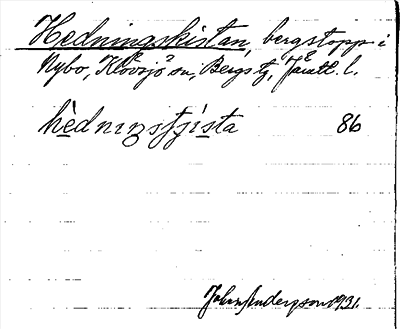 Hedningskistan, bergstopp i
Nybo, Klövsjö sn, Bergs tg, Jämtl. l.
hèdniŋsʃʃísta 86
John Anderson 1931.